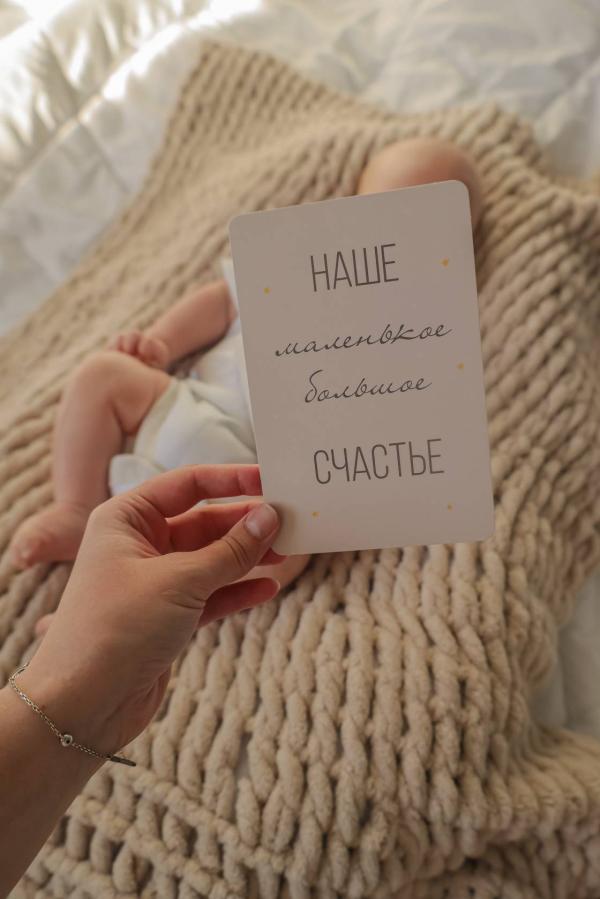 НАШЕ
маленькое
большое
СЧАСТЬЕ